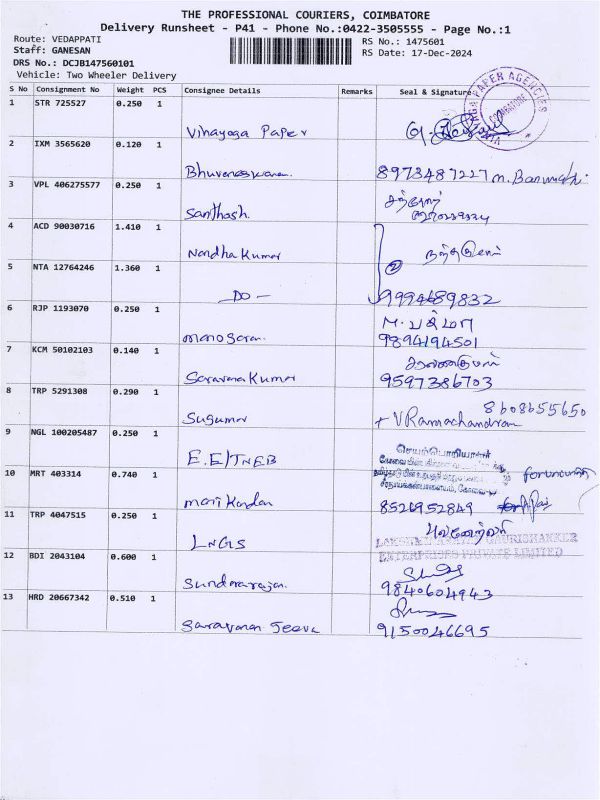 THE PROFESSIONAL COURIERS, COIMBATORE
Delivery Runsheet - P41 - Phone No.:0422-3505555 - Page No.:1
Route: VEDAPPATI RS No.: 1475601
Staff: GANESAN RS Date: 17-Dec-2024
DRS No.: DCJB147560101
Vehicle: Two Wheeler Delivery
S No Consignment No Weight PCS Consignee Details Remarks Seal & Signature
1 STR 725527 0.250 1
Vinayaga Paper
PAPER AGENCIES
COIMBATORE
2 IXM 3565620 0.120 1
Bhuveneswaran 8973487227
3 VPL 406275577 0.250 1
Santhosh
4 ACD 90030716 1.410 1
Nandha Kumar
5 NTA 12764246 1.360 1
2
DO - 9994689832
6 RJP 1193070 0.250 1
manogaran 9894194501
7 KCM 50102103 0.140 1
Saravana Kumar 9597386703
8 TRP 5291308 0.290 1
8608655650
Sugumar V Ramachandran
9 NGL 100205487 0.250 1
செயற்பொறியாளர்
E.E/TNEB
10 MRT 403314 0.740 1
mani Kandan 8526952849
11 TRP 4047515 0.250 1
LNGS
ENTERPRISES PRIVATE LIMITED
12 BDI 2043104 0.600 1
Sundararajan 9840604943
13 HRD 20667342 0.510 1
Saravanan Jeeva 9150046695